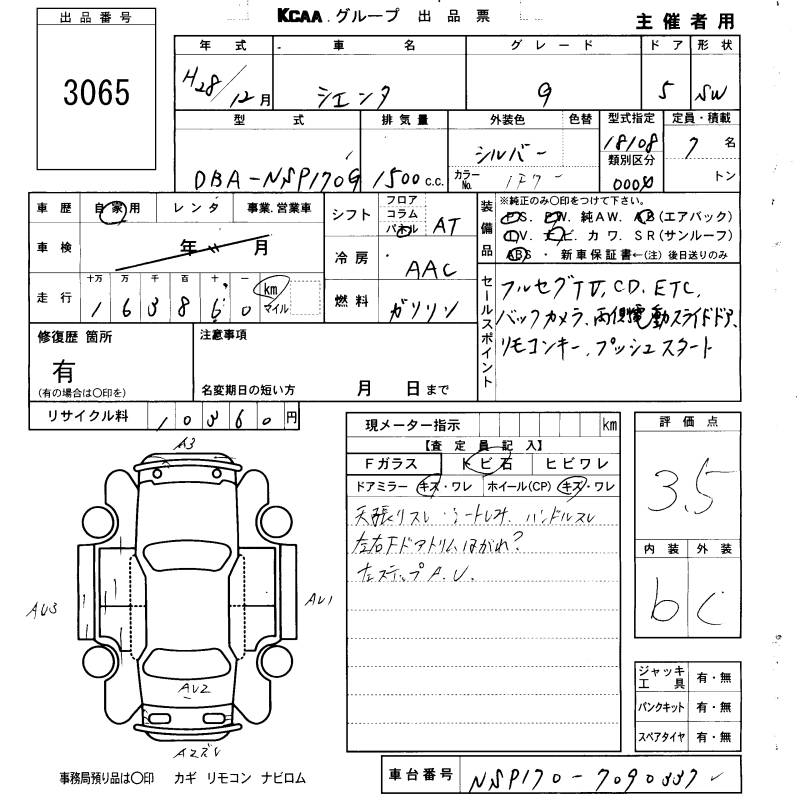 出品番号
3065
KCAA グループ 出品票
主催者用
年式 車名 グレード ドア 形状
H28/12月 シエンタ G 5 SW
型式 排気量 外装色 色替 型式指定 定員・積載
DBA-NSP170G 1500c.c. シルバー 18108 7名
カラーNo. 1F7 類別区分 トン
車歴 自家用 レンタ 事業・営業車
車検 年 月
走行 十万 万 千 百 十 一 km マイル
1 6 3 8 6 0
シフト フロア コラム パネル AT
冷房 AAC
燃料 ガソリン
装備品
※純正のみ○印をつけて下さい。
P.S. P.W. 純AW. AB(エアバック)
TV. ナビ. カワ. SR(サンルーフ)
ABS ・ 新車保証書←(注) 後日送りのみ
セールスポイント
フルセグTV, CD. ETC,
バックカメラ, 両側電動スライドドア,
リモコンキー, プッシュスタート
修復歴 箇所
有
(有の場合は○印を)
注意事項
名変期日の短い方 月 日まで
リサイクル料 10360円
現メーター指示 km
【査定員記入】
Fガラス トビ石 ヒビワレ
ドアミラー キズ・ワレ ホイール(CP) キズ・ワレ
天張リスレ・シートシミ. ハンドルスレ
左右Fドアトリムはがれ?
左ステップA.U.
評価点
3.5
内装 外装
b C
ジャッキ工具 有・無
パンクキット 有・無
スペアタイヤ 有・無
A3
AU3
AU1
AU2
事務局預り品は○印 カギ リモコン ナビロム
車台番号 NSP170-7090337